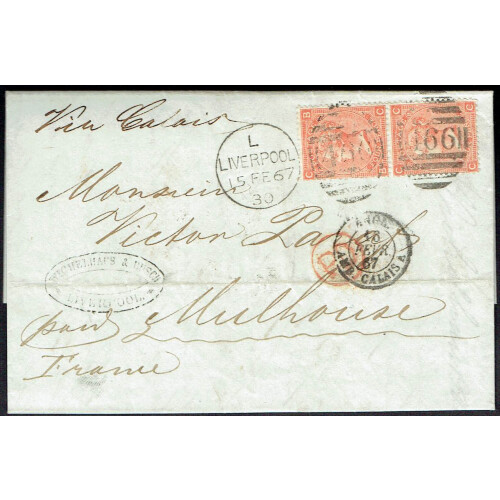 Via Calais
L
LIVERPOOL
15 FE 67
30
466
Monsieur
Victor
18
FEVR
67
AMB. CALAIS
& CUSCO
LIVERPOOL
pour Mulhouse
France